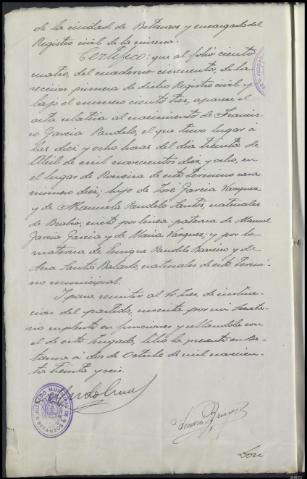 de la ciudad de Betanzos y encargado del
Registro civil de la misma.
Certifico: que al folio ciento
cuatro, del cuaderno cincuenta, de la
seccion primera de dicho Registro civil y
bajo el numero ciento tres, aparece el
acta relativa al nacimiento de Francis-
co Garcia Randelo, el que tuvo lugar á
las diez y ocho horas del dia treinta de
Abril de mil novecientos diez y ocho, en
el lugar de de este termino casa
numero diez; hijo de José Garcia Vazquez
y de Manuela Randelo Santos, naturales
de nieto por linea paterna de Manuel
Garcia Garcia y de Maria Vazquez; y por la
materna de Randelo y de
Ana Santos naturales de este termi-
no municipal.
Y para remitir al Sr Juez de instruc-
cion del partido, expido por mi Secreta-
rio en funciones y sellando con
el de este Juzgado, libro la presente en Be-
tanzos á dos de Octubre de mil novecien-
tos treinta y seis.